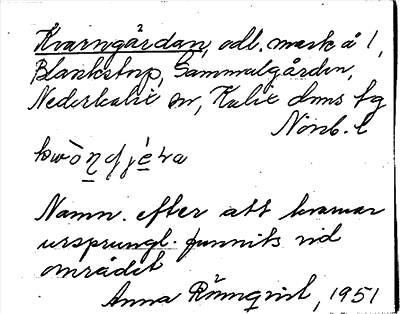 Kvarngårdan, odl. mark å 1,
Blankstorp, Gammalgården,
Nederkalix sn, Kalix dms tg
Norrb. l
Namn. efter att kvarnar
ursprungl. funnits vid
området
Anna Rönnqvist, 1951